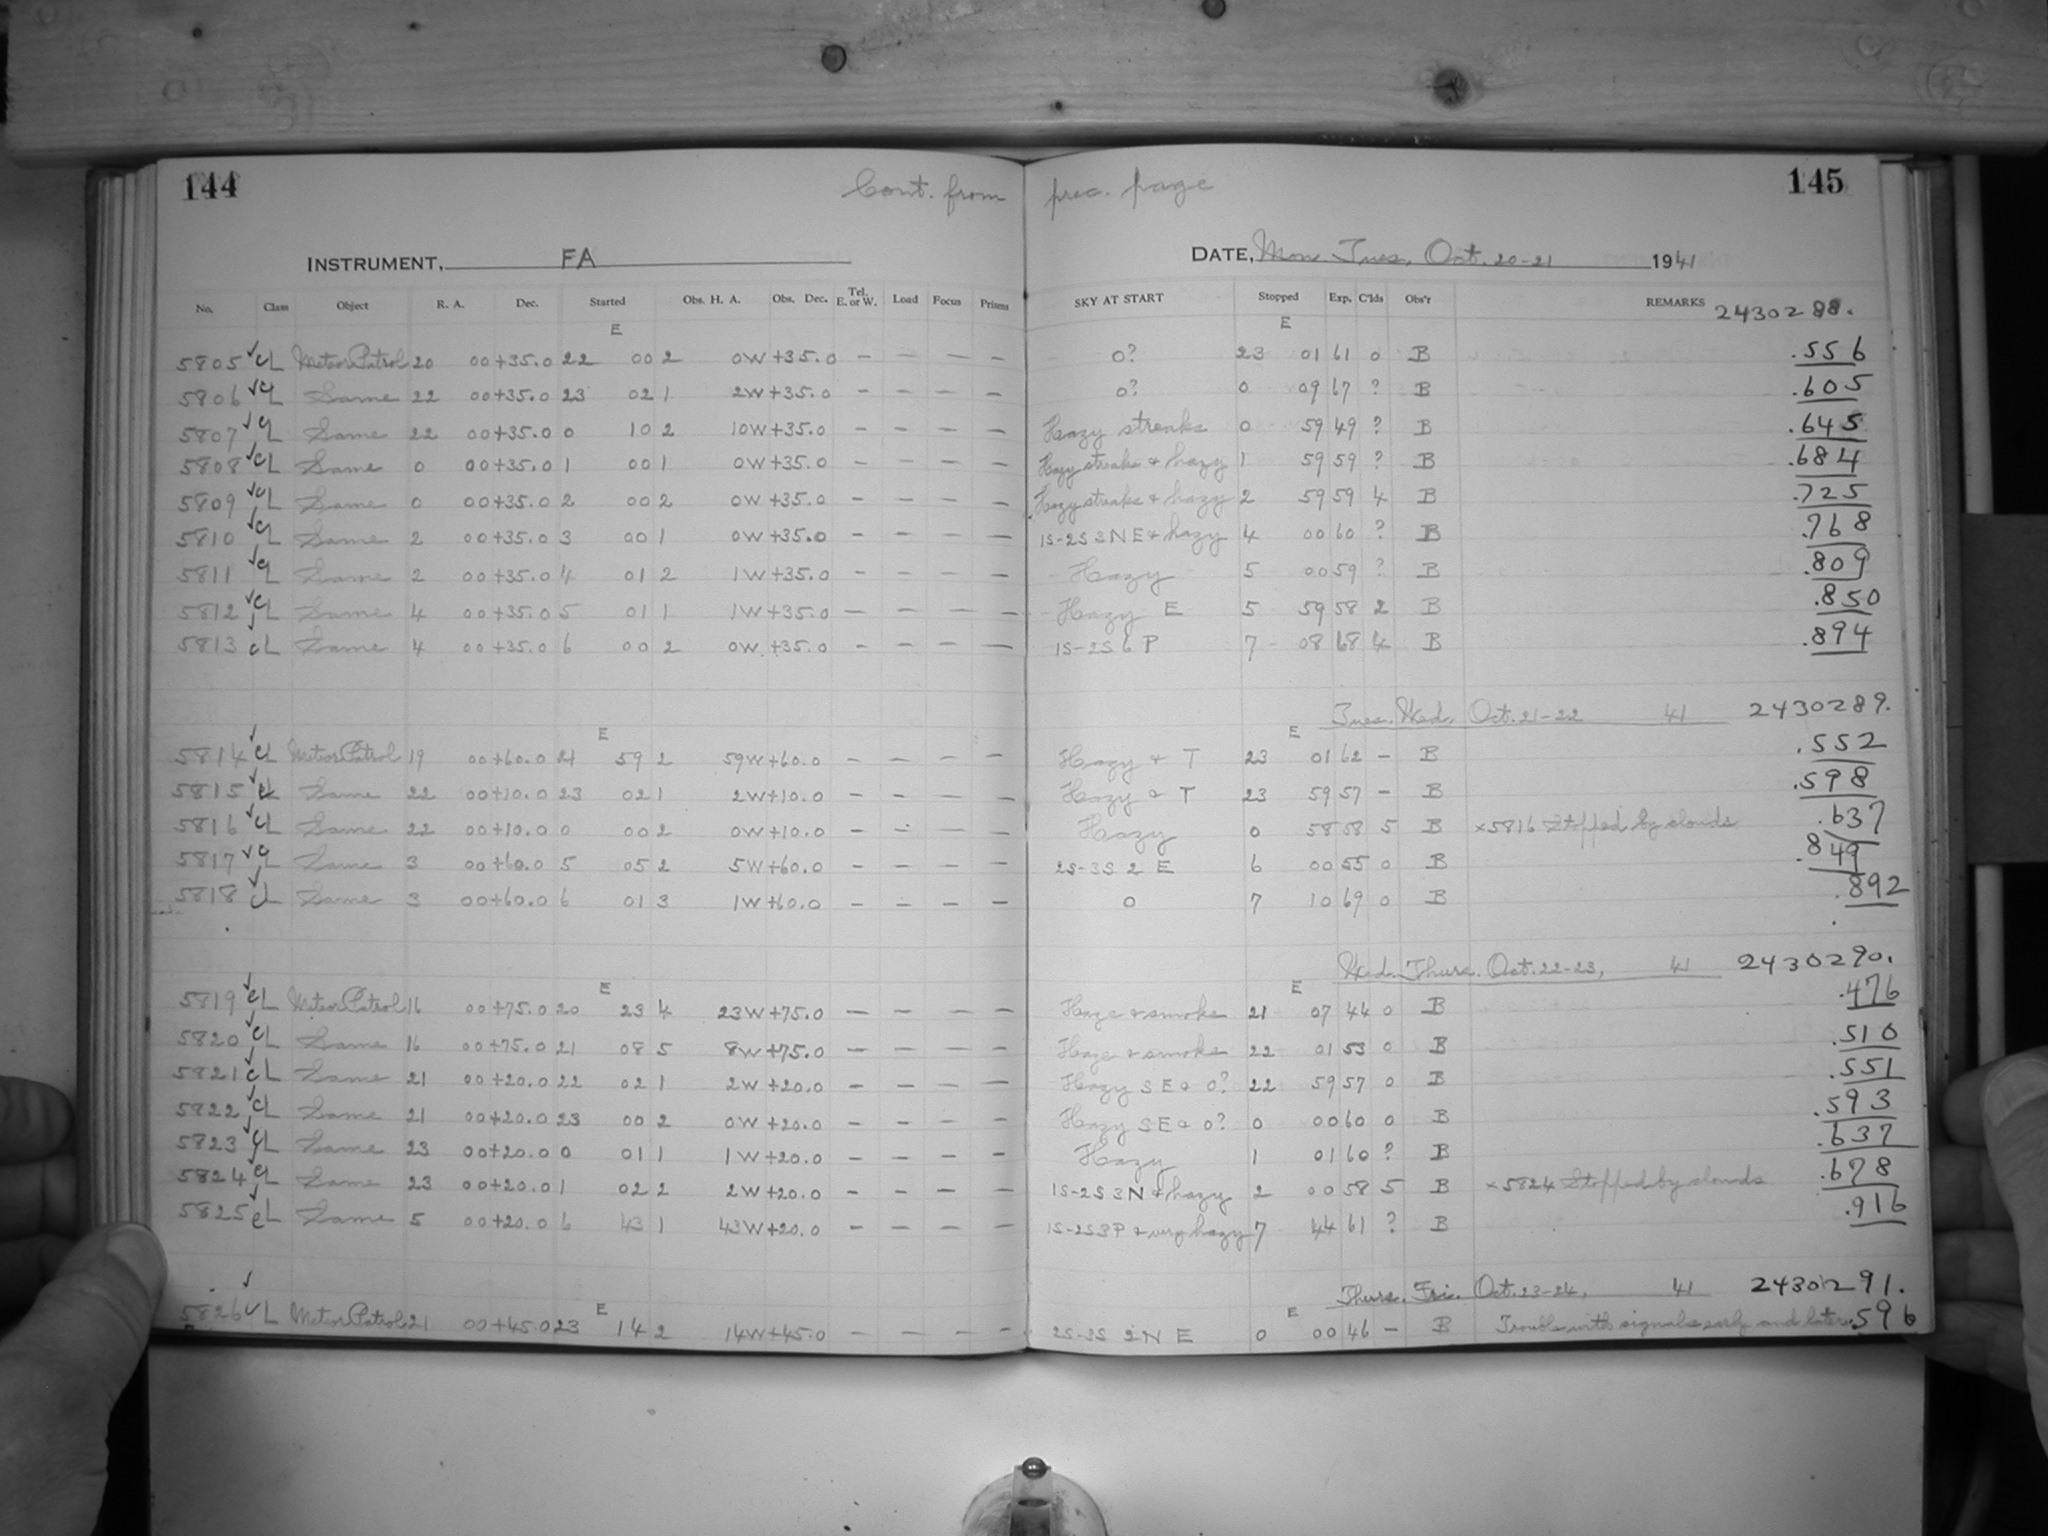 144 Cont. from prec. page 145
INSTRUMENT, FA DATE, Mon. Tues. Oct. 20-21 1941
No. Class Object R. A. Dec. Started Obs. H. A. Obs. Dec. Tel. E. or W. Load Focus Prisms SKY AT START Stopped Exp. C'lds Obs'r REMARKS 2430288.
E E
5805 ✓ CL Meteor Patrol 20 00 +35.0 22 00 2 0W +35.0 – – – – 0? 23 01 61 0 B .556
5806 ✓ CL Same 22 00 +35.0 23 02 1 2W +35.0 – – – – 0? 0 09 67 ? B .605
5807 ✓ CL Same 22 00 +35.0 0 10 2 10W +35.0 – – – – Hazy streaks 0 59 49 ? B .645
5808 ✓ CL Same 0 00 +35.0 1 00 1 0W +35.0 – – – – Hazy streaks & hazy 1 59 59 ? B .684
5809 ✓ CL Same 0 00 +35.0 2 00 2 0W +35.0 – – – – Hazy streaks & hazy 2 59 59 4 B .725
5810 ✓ CL Same 2 00 +35.0 3 00 1 0W +35.0 – – – – 1S-2S 3 N E & hazy 4 00 60 ? B .768
5811 ✓ CL Same 2 00 +35.0 4 01 2 1W +35.0 – – – – Hazy 5 00 59 ? B .809
5812 ✓ CL Same 4 00 +35.0 5 01 1 1W +35.0 – – – – Hazy E 5 59 58 2 B .850
5813 ✓ CL Same 4 00 +35.0 6 00 2 0W +35.0 – – – – 1S-2S 6 P 7 08 68 4 B .894
Tues. Wed. Oct. 21-22 41 2430289.
E E
5814 ✓ CL Meteor Patrol 19 00 +60.0 21 59 2 59W +60.0 – – – – Hazy & T 23 01 62 – B .552
5815 ✓ CL Same 22 00 +10.0 23 02 1 2W +10.0 – – – – Hazy & T 23 59 57 – B .598
5816 ✓ CL Same 22 00 +10.0 0 00 2 0W +10.0 – – – – Hazy 0 58 58 5 B ×5816 Stopped by clouds .637
5817 ✓ CL Same 3 00 +60.0 5 05 2 5W +60.0 – – – – 2S-3S 2 E 6 00 55 0 B .849
5818 ✓ CL Same 3 00 +60.0 6 01 3 1W +60.0 – – – – 0 7 10 69 0 B .892
Wed. Thurs. Oct. 22-23, 41 2430290.
E E
5819 ✓ CL Meteor Patrol 16 00 +75.0 20 23 4 23W +75.0 – – – – Haze & smoke 21 07 44 0 B .476
5820 ✓ CL Same 16 00 +75.0 21 08 5 8W +75.0 – – – – Haze & smoke 22 01 53 0 B .510
5821 ✓ CL Same 21 00 +20.0 22 02 1 2W +20.0 – – – – Hazy S E & 0? 22 59 57 0 B .551
5822 ✓ CL Same 21 00 +20.0 23 00 2 0W +20.0 – – – – Hazy S E & 0? 0 00 60 0 B .593
5823 ✓ CL Same 23 00 +20.0 0 01 1 1W +20.0 – – – – Hazy 1 01 60 ? B .637
5824 ✓ CL Same 23 00 +20.0 1 02 2 2W +20.0 – – – – 1S-2S 3 N & hazy 2 00 58 5 B ×5824 Stopped by clouds .678
5825 ✓ CL Same 5 00 +20.0 6 43 1 43W +20.0 – – – – 1S-2S 3 P & very hazy 7 44 61 ? B .916
Thurs. Fri. Oct. 23-24, 41 2430291.
E E
5826 ✓ CL Meteor Patrol 21 00 +45.0 23 14 2 14W +45.0 – – – – 2S-3S 2 N E 0 00 46 – B Trouble with signals early and later .596